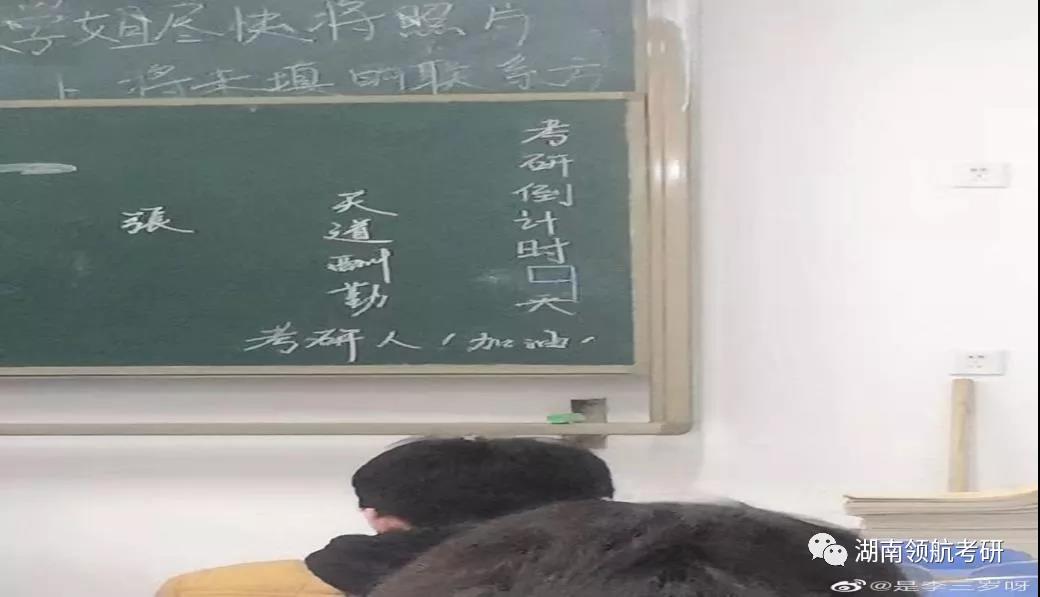 学姐尽快将照片
将未填的联系方
考研倒计时9天
天道酬勤
張
考研人(加油)
湖南领航考研
@是李三岁呀